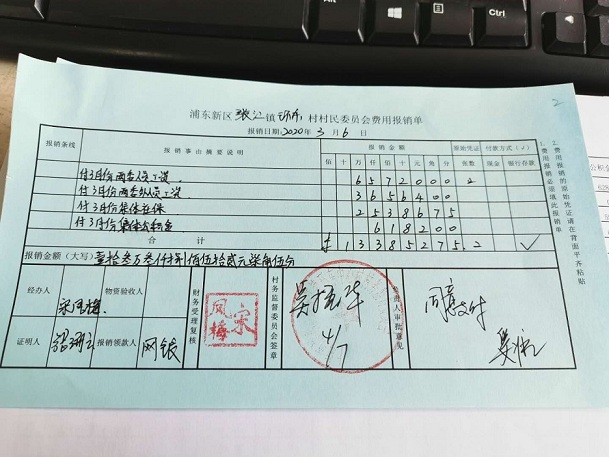 2
浦东新区张江镇 村村民委员会费用报销单
报销日期2020年3月6日
报销条线 报销事由摘要说明 报销金额 原始凭证 付款方式(√)
百 十 万 仟 百 十 元 角 分 张数 现金 银行存款
付3月份两委人员工资 6 5 7 2 0 0 0 2
付3月份两委外人员工资 3 6 5 6 4 0 0
付3月份集体社保 2 5 3 8 6 7 5
付3月份集体公积金 6 1 8 2 0 0
合计 ¥ 1 3 3 8 5 2 7 5 2 √
报销金额(大写)壹拾叁万叁仟捌佰伍拾贰元柒角伍分
经办人 宋凤梅 物资验收人
证明人 报销领款人 网银
财务受理复核
宋凤梅
村务监督委员会签章
吴振华
4/7
负责人审批意见
同意支付
1、费用报销必须填此报销单
2、费用报销的原始凭证请在背面平齐粘贴
Alt
Ctrl